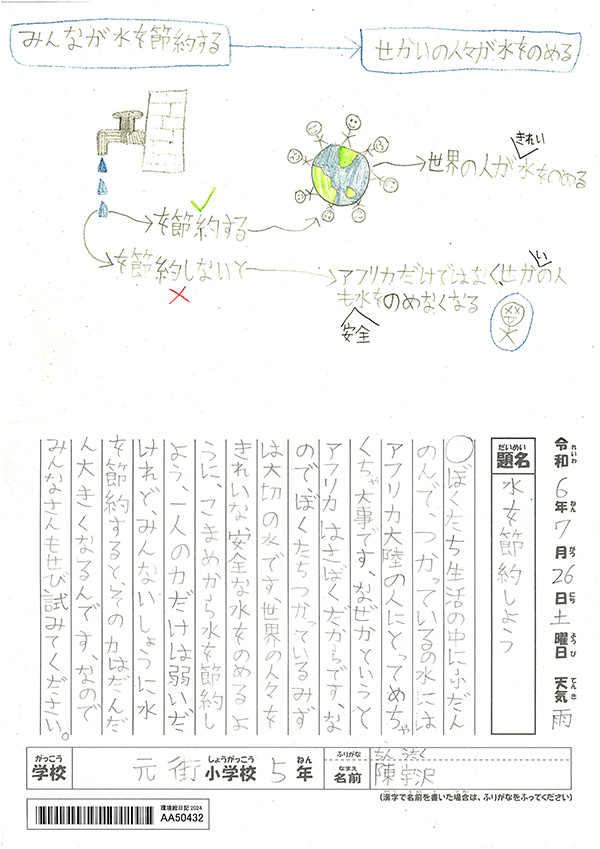 みんなが水を節約する
せかいの人々が水をのめる
きれい
世界の人が水をのめる
を節約する
を節約しないと
アフリカだけではなく、せかの人
い
も水をのめなくなる
安全
令和6年7月26日土曜日 天気雨
れいわ ねん がつ にち ようび てんき
だいめい
題名
水を節約しよう
ぼくたち生活の中にふだん
のんで、つかっているの水には
アフリカ大陸の人にとってめちゃ
くちゃ大事です、なぜかというと
アフリカはさばくだからです、な
ので、ぼくたちつかっているみず
は大切の水です世界の人々を
きれいな安全な水をのめるよ
うに、こまめから水を節約し
よう、一人の力だけは弱いだ
けれど、みんないしょうに水
を節約すると、その力はだんだ
ん大きくなるんです、なので
みんなさんもぜひ試みてください。
がっこう
学校
元街小学校5年
しょうがっこう ねん
ふりがな
ちん うたく
なまえ
名前
陳宇沢
(漢字で名前を書いた場合は、ふりがなをふってください)
環境絵日記2024
AA50432